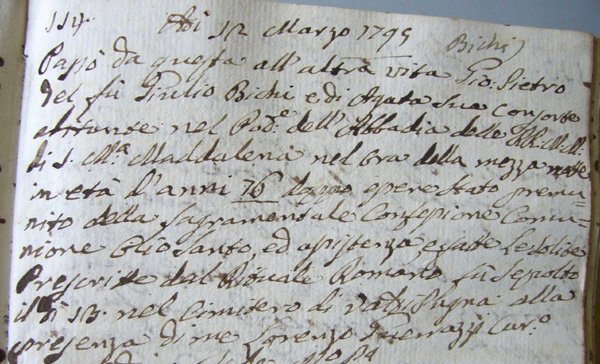 114. Adi 12 Marzo 1795 Bichi
Passò da questa all'altra vita Gio: Pietro
del fù Giulio Bichi e di Agata sua consorte
abitante nel Pod.e dell'Abbadia delle RR. M.M.
di S. M.a Maddalena nel ora della mezza notte
in età d'anni 76 doppo essere stato premu-
nito della Sagramentale Confessione Comu-
nione Oliosanto, ed assistenza, e fatte le solite
Prescritte dal Rituale Romano fù sepolto
il dì 13. nel Cimitero di Pagna alla
presenza di me Lorenzo Cur.o